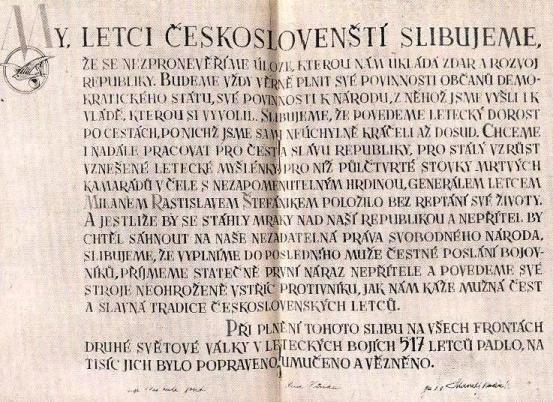 MY, LETCI ČESKOSLOVENŠTÍ SLIBUJEME,
ŽE SE NEZPRONEVĚŘÍME ÚLOZE, KTEROU NÁM UKLÁDÁ ZDAR A ROZVOJ
REPUBLIKY. BUDEME VŽDY VĚRNĚ PLNIT SVÉ POVINNOSTI OBČANŮ DEMO-
KRATICKÉHO STÁTU, SVÉ POVINNOSTI K NÁRODU, Z NĚHOŽ JSME VYŠLI I K
VLÁDĚ, KTEROU SI VYVOLIL. SLIBUJEME, ŽE POVEDEME LETECKÝ DOROST
PO CESTÁCH, PO NICHŽ JSME SAMI NEÚCHYLNĚ KRÁČELI AŽ DOSUD. CHCEME
I NADÁLE PRACOVAT PRO ČEST A SLÁVU REPUBLIKY, PRO STÁLÝ VZRŮST
VZNEŠENÉ LETECKÉ MYŠLÉNKY, PRO NÍŽ PŮLČTVRTÉ STOVKY MRTVÝCH
KAMARÁDŮ V ČELE S NEZAPOMENUTELNÝM HRDINOU, GENERÁLEM LETCEM
MILANEM RASTISLAVEM ŠTEFÁNIKEM POLOŽILO BEZ REPTÁNÍ SVÉ ŽIVOTY.
A JESTLIŽE BY SE STÁHLY MRAKY NAD NAŠÍ REPUBLIKOU A NEPŘÍTEL BY
CHTĚL SÁHNOUT NA NAŠE NEZADATELNÁ PRÁVA SVOBODNÉHO NÁRODA,
SLIBUJEME, ŽE VYPLNÍME DO POSLEDNÍHO MUŽE ČESTNÉ POSLÁNÍ BOJOV-
NÍKŮ, PŘIJMEME STATEČNĚ PRVNÍ NÁRAZ NEPŘÍTELE A POVEDEME SVÉ
STROJE NEOHROŽENĚ VSTŘÍC PROTIVNÍKU, JAK NÁM KÁŽE MUŽNÁ ČEST
A SLAVNÁ TRADICE ČESKOSLOVENSKÝCH LETCŮ.
PŘI PLNĚNÍ TOHOTO SLIBU NA VŠECH FRONTÁCH
DRUHÉ SVĚTOVÉ VÁLKY V LETECKÝCH BOJÍCH 517 LETCŮ PADLO, NA
TISÍC JICH BYLO POPRAVENO, UMUČENO A VĚZNĚNO.